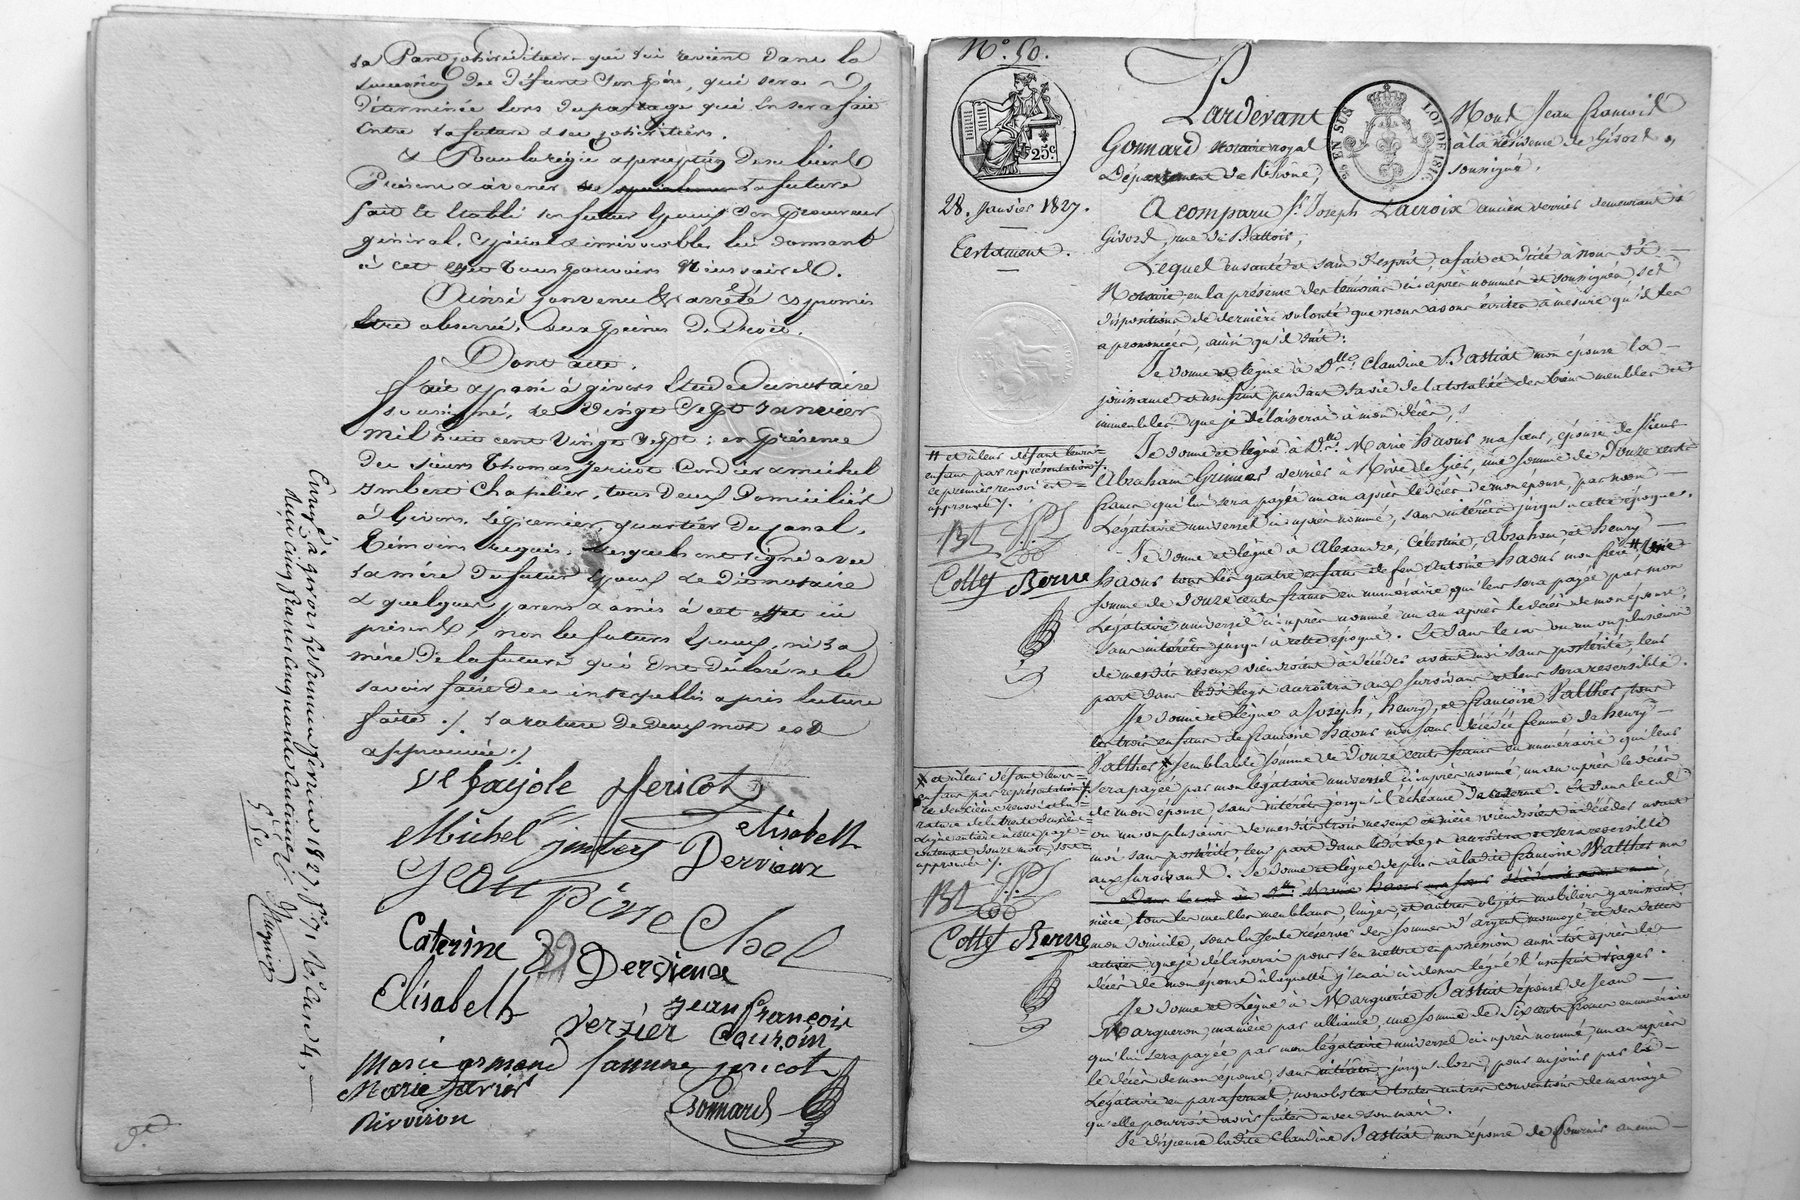 sa Part cohéréditaire qui lui revient dans la
succession de défunt son père, qui sera
déterminée lors du partage qui en sera fait
entre la future & ses cohéritiers.
& Pour la régie & perception des biens
Présens & à venir la future
fait et établi son futur Epoux son procureur
général, spécial & irrévocable, lui donnant
à cet effet tous pouvoirs nécessaires.
Ainsi convenu & arrêté & promis
être observé, aux peines de Droit.
Dont acte.
fait & passé à givors Etude du notaire
soussigné, le vingt sept janvier
mil huit cent vingt sept; en présence
des sieurs Thomas jericot Cordier & michel
imbert Chapelier, tous deux Domiciliés
à Givors, le premier quartier du Canal,
témoins requis, lesquels ont signé avec
la mère du futur Epoux le dit notaire
& quelques parens & amis à cet effet ici
présents, non les futurs Epoux, ni la
mère de la future qui ont déclaré ne le
savoir faire de ce interpellés après lecture
faite ./. la rature de deux mots est
approuvée ./
ve faijole jericot
Michel jmbert elisabeth
Dervieux
jean pierre Chol
Caterine Dervieux
Elisabeth
verzier jean françois
Couroin
Marie armand femme jericot
Marie Favier
Rivoiron Gonnard
Enregé à givors le premier fevrier 1827, fo 71 Ro Case 4,
reçu cinq francs cinquante centimes
5f 50
No. 50.
25c
28. Janvier 1827.
Testament.
Pardevant Mons Jean françois
Gonnard notaire royal à la résidence de Givors,
Département du Rhône, soussigné,
EN SUS LOI DE 1816
A comparu sr. Joseph Lacroix ancien verrier demeurant à
Givors, rue de Battois,
Lequel en santé et sain d'esprit, a fait et dicté à nous dit
Notaire, en la présence des témoins ci-après nommés et soussignés, ses
dispositions de dernière volonté que nous avons écrites à mesure qu'il les
a prononcées, ainsi qu'il suit:
Je donne et lègue à Dlle. Claudine Bastiat mon épouse la
jouissance et usufruit pendant sa vie de la totalité des biens meubles et
immeubles que je délaisserai à mon décès,
Je donne et lègue à Dlle. Marie haour ma sœur, épouse de sieur
Abraham Grimer verrier à Rive de Gier, une somme de Douze cents
francs qui lui sera payée un an après le décès de mon épouse, par mon
Légataire universel ci-après nommé, sans intérêts jusqu'à cette époque.
Je donne et lègue à Alexandre, Celestine, Abraham et henry
haour tous les quatre enfans de feu antoine haour mon frère #
somme de Douze cents francs en numéraire qui leur sera payée par mon
Légataire universel ci-après nommé un an après le décès de mon épouse,
sans intérêts jusqu'à cette époque. Et dans le cas où un ou plusieurs
de mesdits neveux viendroient à décéder avant moi sans postérité, leur
part dans ledit legs accroîtra aux survivans et leur sera reversible.
Je donne et lègue à Joseph, henry, et françoise Walther, tous
les trois enfans de françoise haour ma sœur décédée femme de henry
Walther # semblable somme de Douze cents francs en numéraire qui leur
sera payée par mon légataire universel ci-après nommé, un an après le décès
de mon épouse, sans intérêts jusqu'à l'échéance du terme. Et dans le cas
où un ou plusieurs de mesdits trois neveux et nièce viendroient à décéder avant
moi sans postérité, leur part dans ledit legs accroîtra et sera reversible
aux survivans. Je donne et lègue de plus à ladite françoise Walther ma
nièce, tous les meubles meublans, linges, et autres objets mobiliers garnissant
mon Domicile, sous la seule réserve des sommes d'argent monnoyé et des dettes
actives que je délaisserai pour s'en mettre en possession aussi-tôt après le
décès de mon épouse à laquelle j'en ai ci-dessus légué l'usufruit viager.
Je donne et Lègue à Marguerite Bastiat épouse de Jean
Margueron, ma nièce par alliance, une somme de Six cents francs en numéraire
qui lui sera payée par mon légataire universel ci-après nommé, un an après
le décès de mon épouse, sans intérêts jusqu'alors, pour en jouir par la
Légataire en parafernal, nonobstant toutes autres conventions de mariage
qu'elle pourroit avoir faites avec son mari.
Je dispense ladite Claudine Bastiat mon épouse de fournir aucun
# et à leur défaut leurs
enfans par représentation ./.
ce premier renvoi est
approuvé ./.
Collet Berne
# et à leur défaut leurs
enfans par représentation ./.
ce deuxième renvoi et la
rature de la trente deuxième
Ligne entière à cette page
contenant douze mots, sont
approuvés ./.
Collet Berne